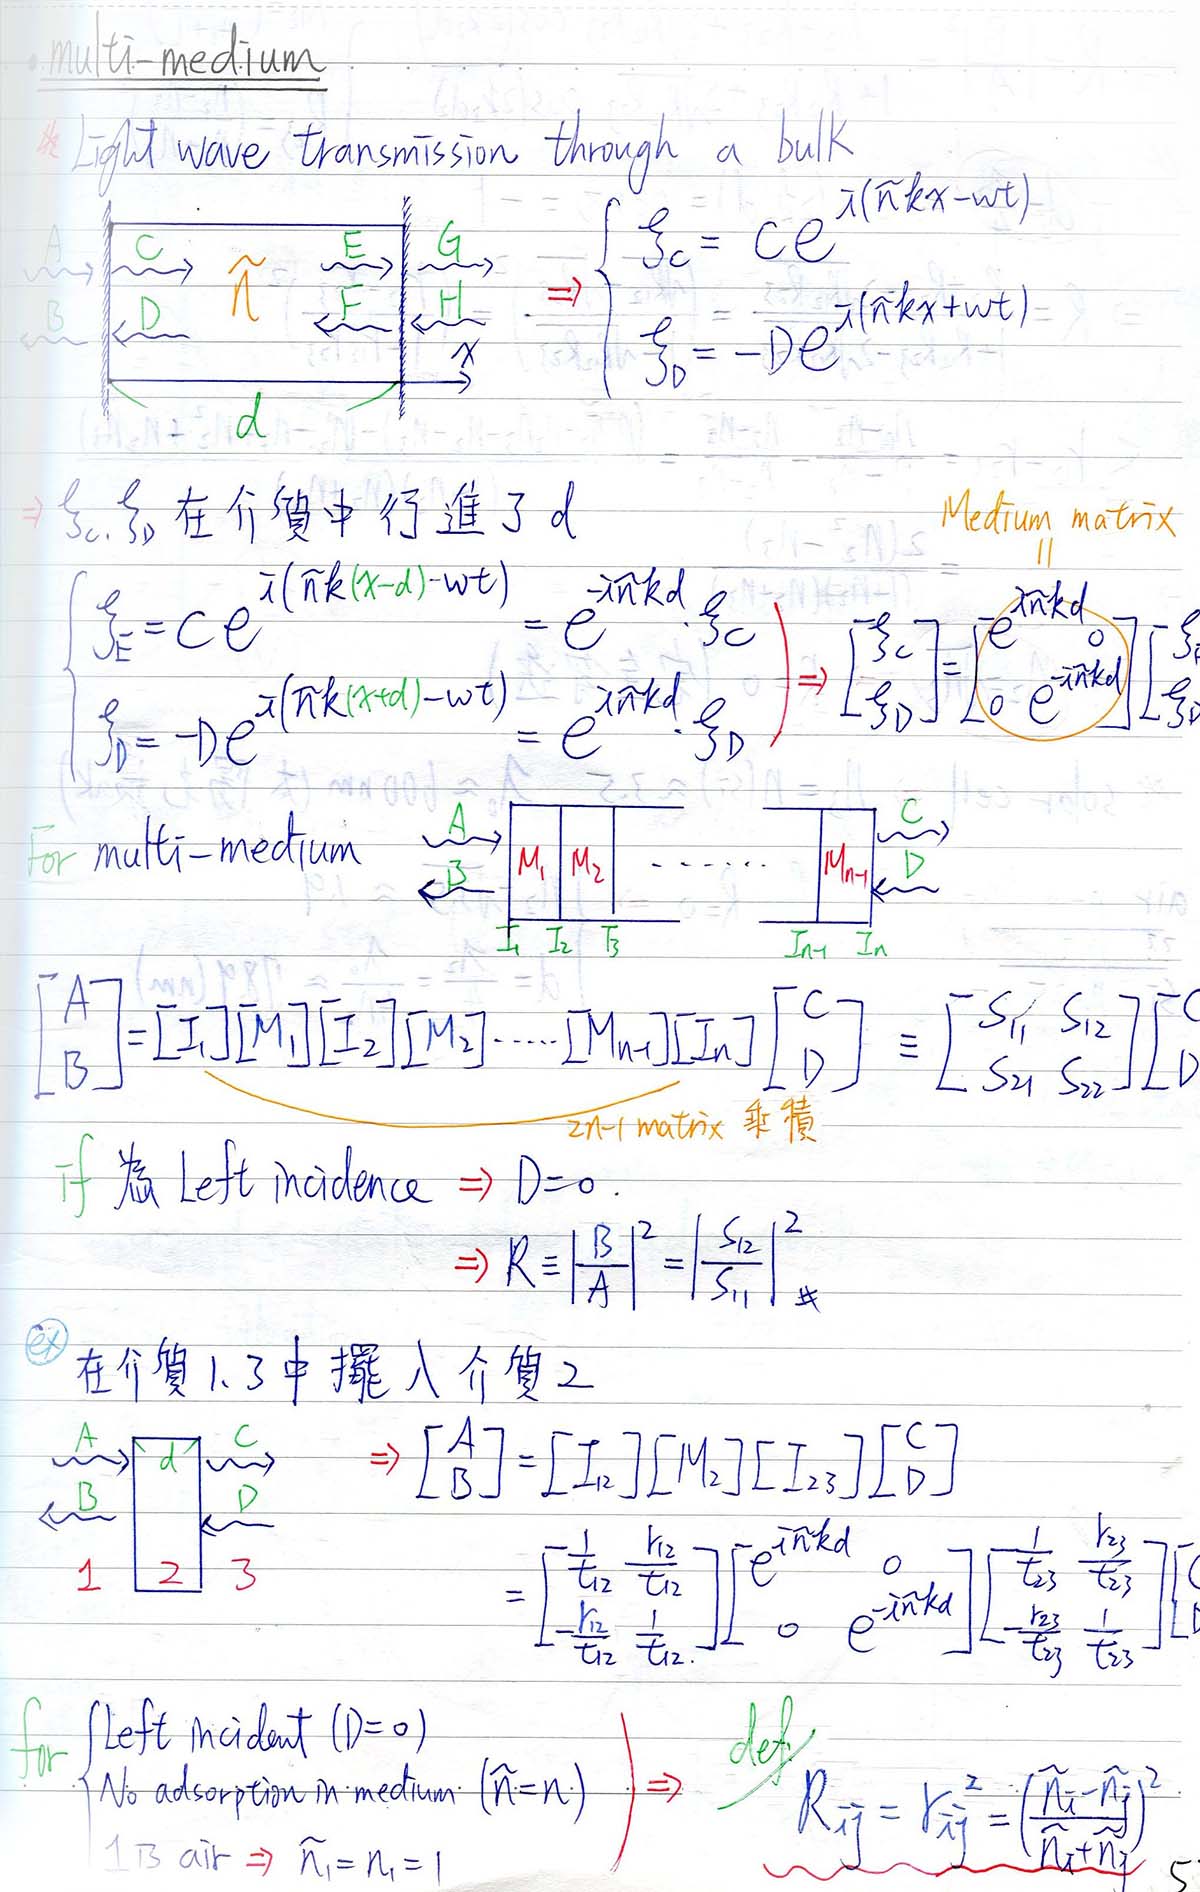 multi-medium
Light wave transmission through a bulk
A C ñ E G
B D F H
x
d
⇒ { ξ_C = C e^{i(ñkx-wt)}
ξ_D = -D e^{i(ñkx+wt)}
⇒ ξ_C, ξ_D 在介質中行進了d
Medium matrix
=
{ ξ_E = C e^{i(ñk(x-d)-wt)} = e^{-iñkd}·ξ_C
ξ_D = -D e^{i(ñk(x+d)-wt)} = e^{iñkd}·ξ_D
⇒ [ξ_C ξ_D] = [e^{iñkd} 0 0 e^{-iñkd}]
For multi-medium
A M₁ M₂ ...... M_{n-1} C
B D
I₁ I₂ I₃ I_{n-1} I_n
[A B] = [I₁][M₁][I₂][M₂].....[M_{n-1}][I_n][C D] ≡ [S₁₁ S₁₂ S₂₁ S₂₂][C D
2n-1 matrix 乘積
if 為 Left incidence ⇒ D=0.
⇒ R ≡ |B/A|² = |S₁₂/S₁₁|² #
ex 在介質1.3中擺入介質2
A d C
B D
1 2 3
⇒ [A B] = [I₁₂][M₂][I₂₃][C D]
= [1/t₁₂ r₁₂/t₁₂ -r₁₂/t₁₂ 1/t₁₂.][e^{iñkd} 0 0 e^{-iñkd}][1/t₂₃ r₂₃/t₂₃ -r₂₃/t₂₃ 1/t₂₃][C D
for { Left incident (D=0)
No adsorption in medium (ñ=n)
1 is air ⇒ ñ₁=n₁=1
⇒ def R_{ij} = r_{ij}² = ((ñ_i-ñ_j)/(ñ_i+ñ_j))²